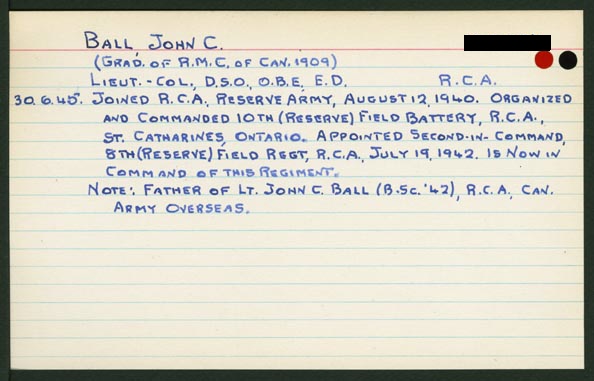 BALL, JOHN C.
(GRAD. OF R.M.C. OF CAN. 1909)
LIEUT.-COL., D.S.O., O.B.E., E.D. R.C.A.
30.6.45. JOINED R.C.A. RESERVE ARMY, AUGUST 12, 1940. ORGANIZED
AND COMMANDED 10TH (RESERVE) FIELD BATTERY, R.C.A.,
ST. CATHARINES, ONTARIO. APPOINTED SECOND-IN-COMMAND,
8TH (RESERVE) FIELD REGT., R.C.A., JULY 19, 1942. IS NOW IN
COMMAND OF THIS REGIMENT.
NOTE: FATHER OF LT. JOHN C. BALL (B.SC. '42), R.C.A., CAN.
ARMY OVERSEAS.